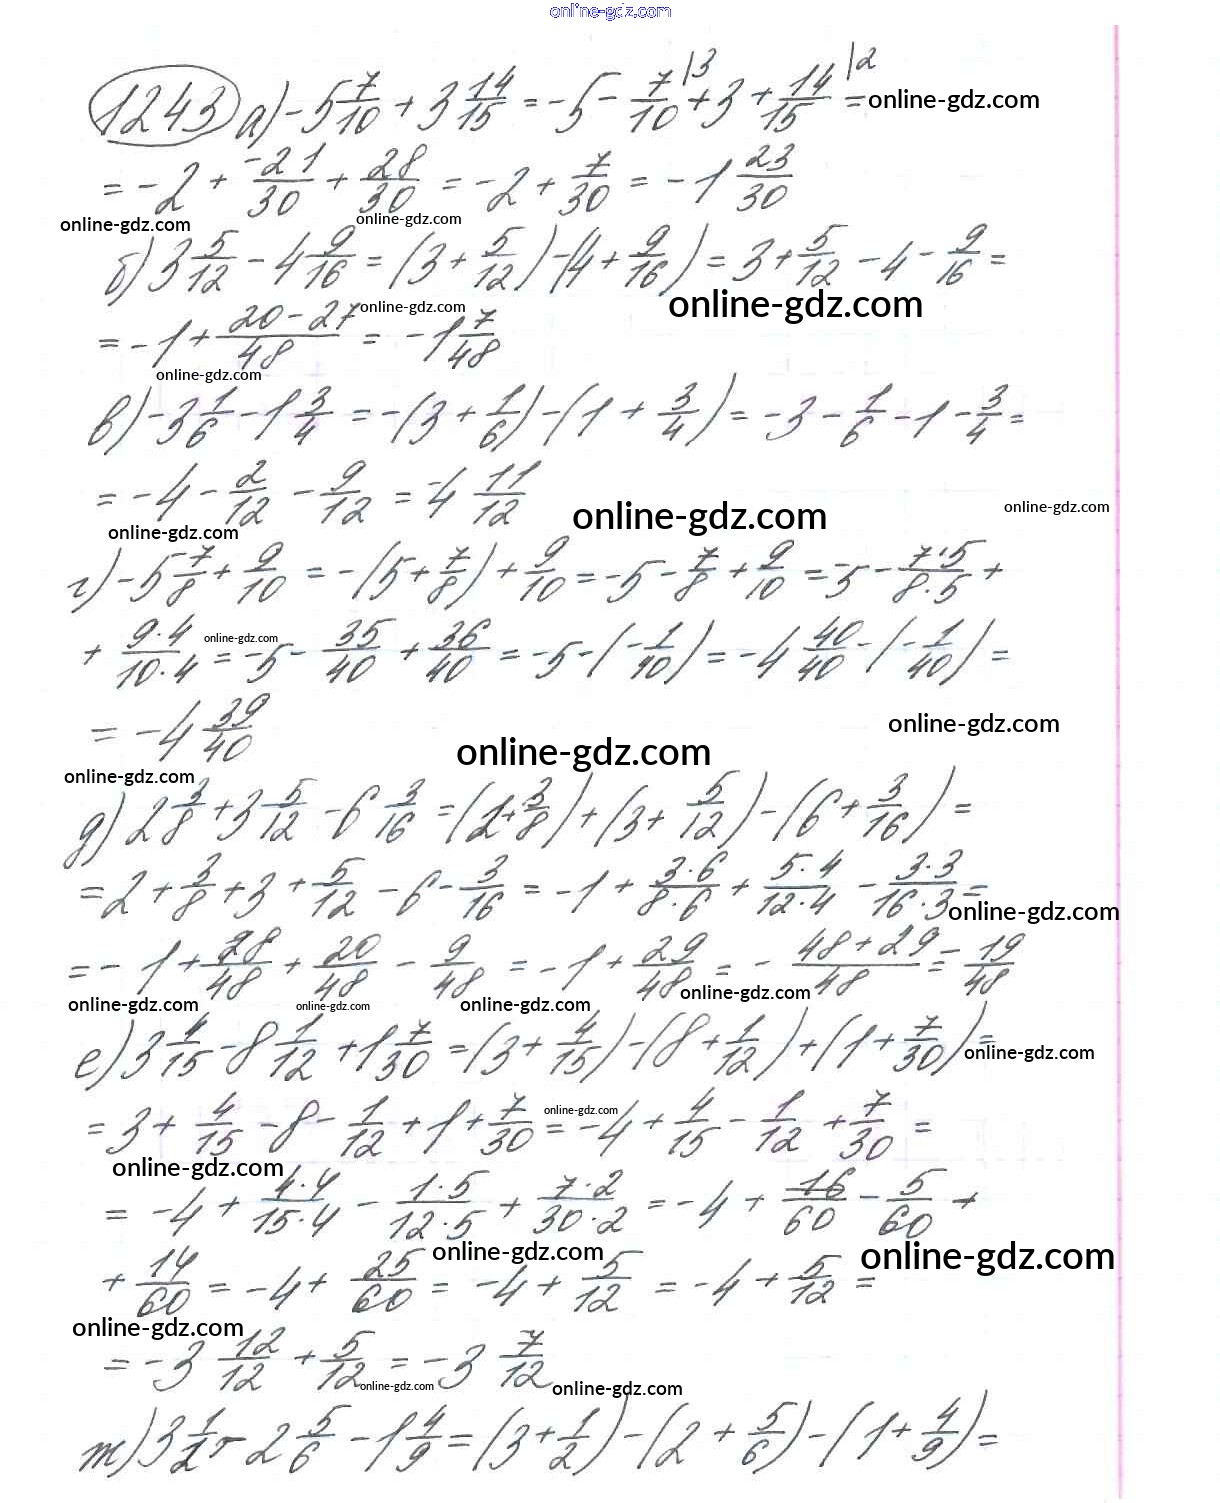 online-gdz.com
1243 а) -5 7/10 + 3 14/15 = -5 - 7/10 |3 + 3 + 14/15 |2 = online-gdz.com
= -2 + -21/30 + 28/30 = -2 + 7/30 = -1 23/30
online-gdz.com online-gdz.com
б) 3 5/12 - 4 9/16 = (3 + 5/12) - (4 + 9/16) = 3 + 5/12 - 4 - 9/16 =
online-gdz.com online-gdz.com
= -1 + (20 - 27)/48 = -1 7/48
online-gdz.com
в) -3 1/6 - 1 3/4 = -(3 + 1/6) - (1 + 3/4) = -3 - 1/6 - 1 - 3/4 =
= -4 - 2/12 - 9/12 = -4 11/12
online-gdz.com online-gdz.com online-gdz.com
г) -5 7/8 + 9/10 = -(5 + 7/8) + 9/10 = -5 - 7/8 + 9/10 = -5 - 7·5/8·5 +
+ 9·4/10·4 online-gdz.com = -5 - 35/40 + 36/40 = -5 - (-1/40) = -4 40/40 - (-1/40) =
= -4 39/40
online-gdz.com online-gdz.com online-gdz.com
д) 2 3/8 + 3 5/12 - 6 3/16 = (2 + 3/8) + (3 + 5/12) - (6 + 3/16) =
= 2 + 3/8 + 3 + 5/12 - 6 - 3/16 = -1 + 3·6/8·6 + 5·4/12·4 - 3·3/16·3 =
online-gdz.com
= -1 + 28/48 + 20/48 - 9/48 = -1 + 29/48 = - (48 + 29)/48 = - 19/48
online-gdz.com online-gdz.com online-gdz.com online-gdz.com
е) 3 4/15 - 8 1/12 + 1 7/30 = (3 + 4/15) - (8 + 1/12) + (1 + 7/30) =
online-gdz.com
= 3 + 4/15 - 8 - 1/12 + 1 + 7/30 online-gdz.com = -4 + 4/15 - 1/12 + 7/30 =
online-gdz.com
= -4 + 4·4/15·4 - 1·5/12·5 + 7·2/30·2 = -4 + 16/60 - 5/60 +
online-gdz.com online-gdz.com
+ 14/60 = -4 + 25/60 = -4 + 5/12 = -4 + 5/12 =
online-gdz.com
= -3 12/12 + 5/12 = -3 7/12
online-gdz.com online-gdz.com
т) 3 1/2 - 2 5/6 - 1 4/9 = (3 + 1/2) - (2 + 5/6) - (1 + 4/9) =